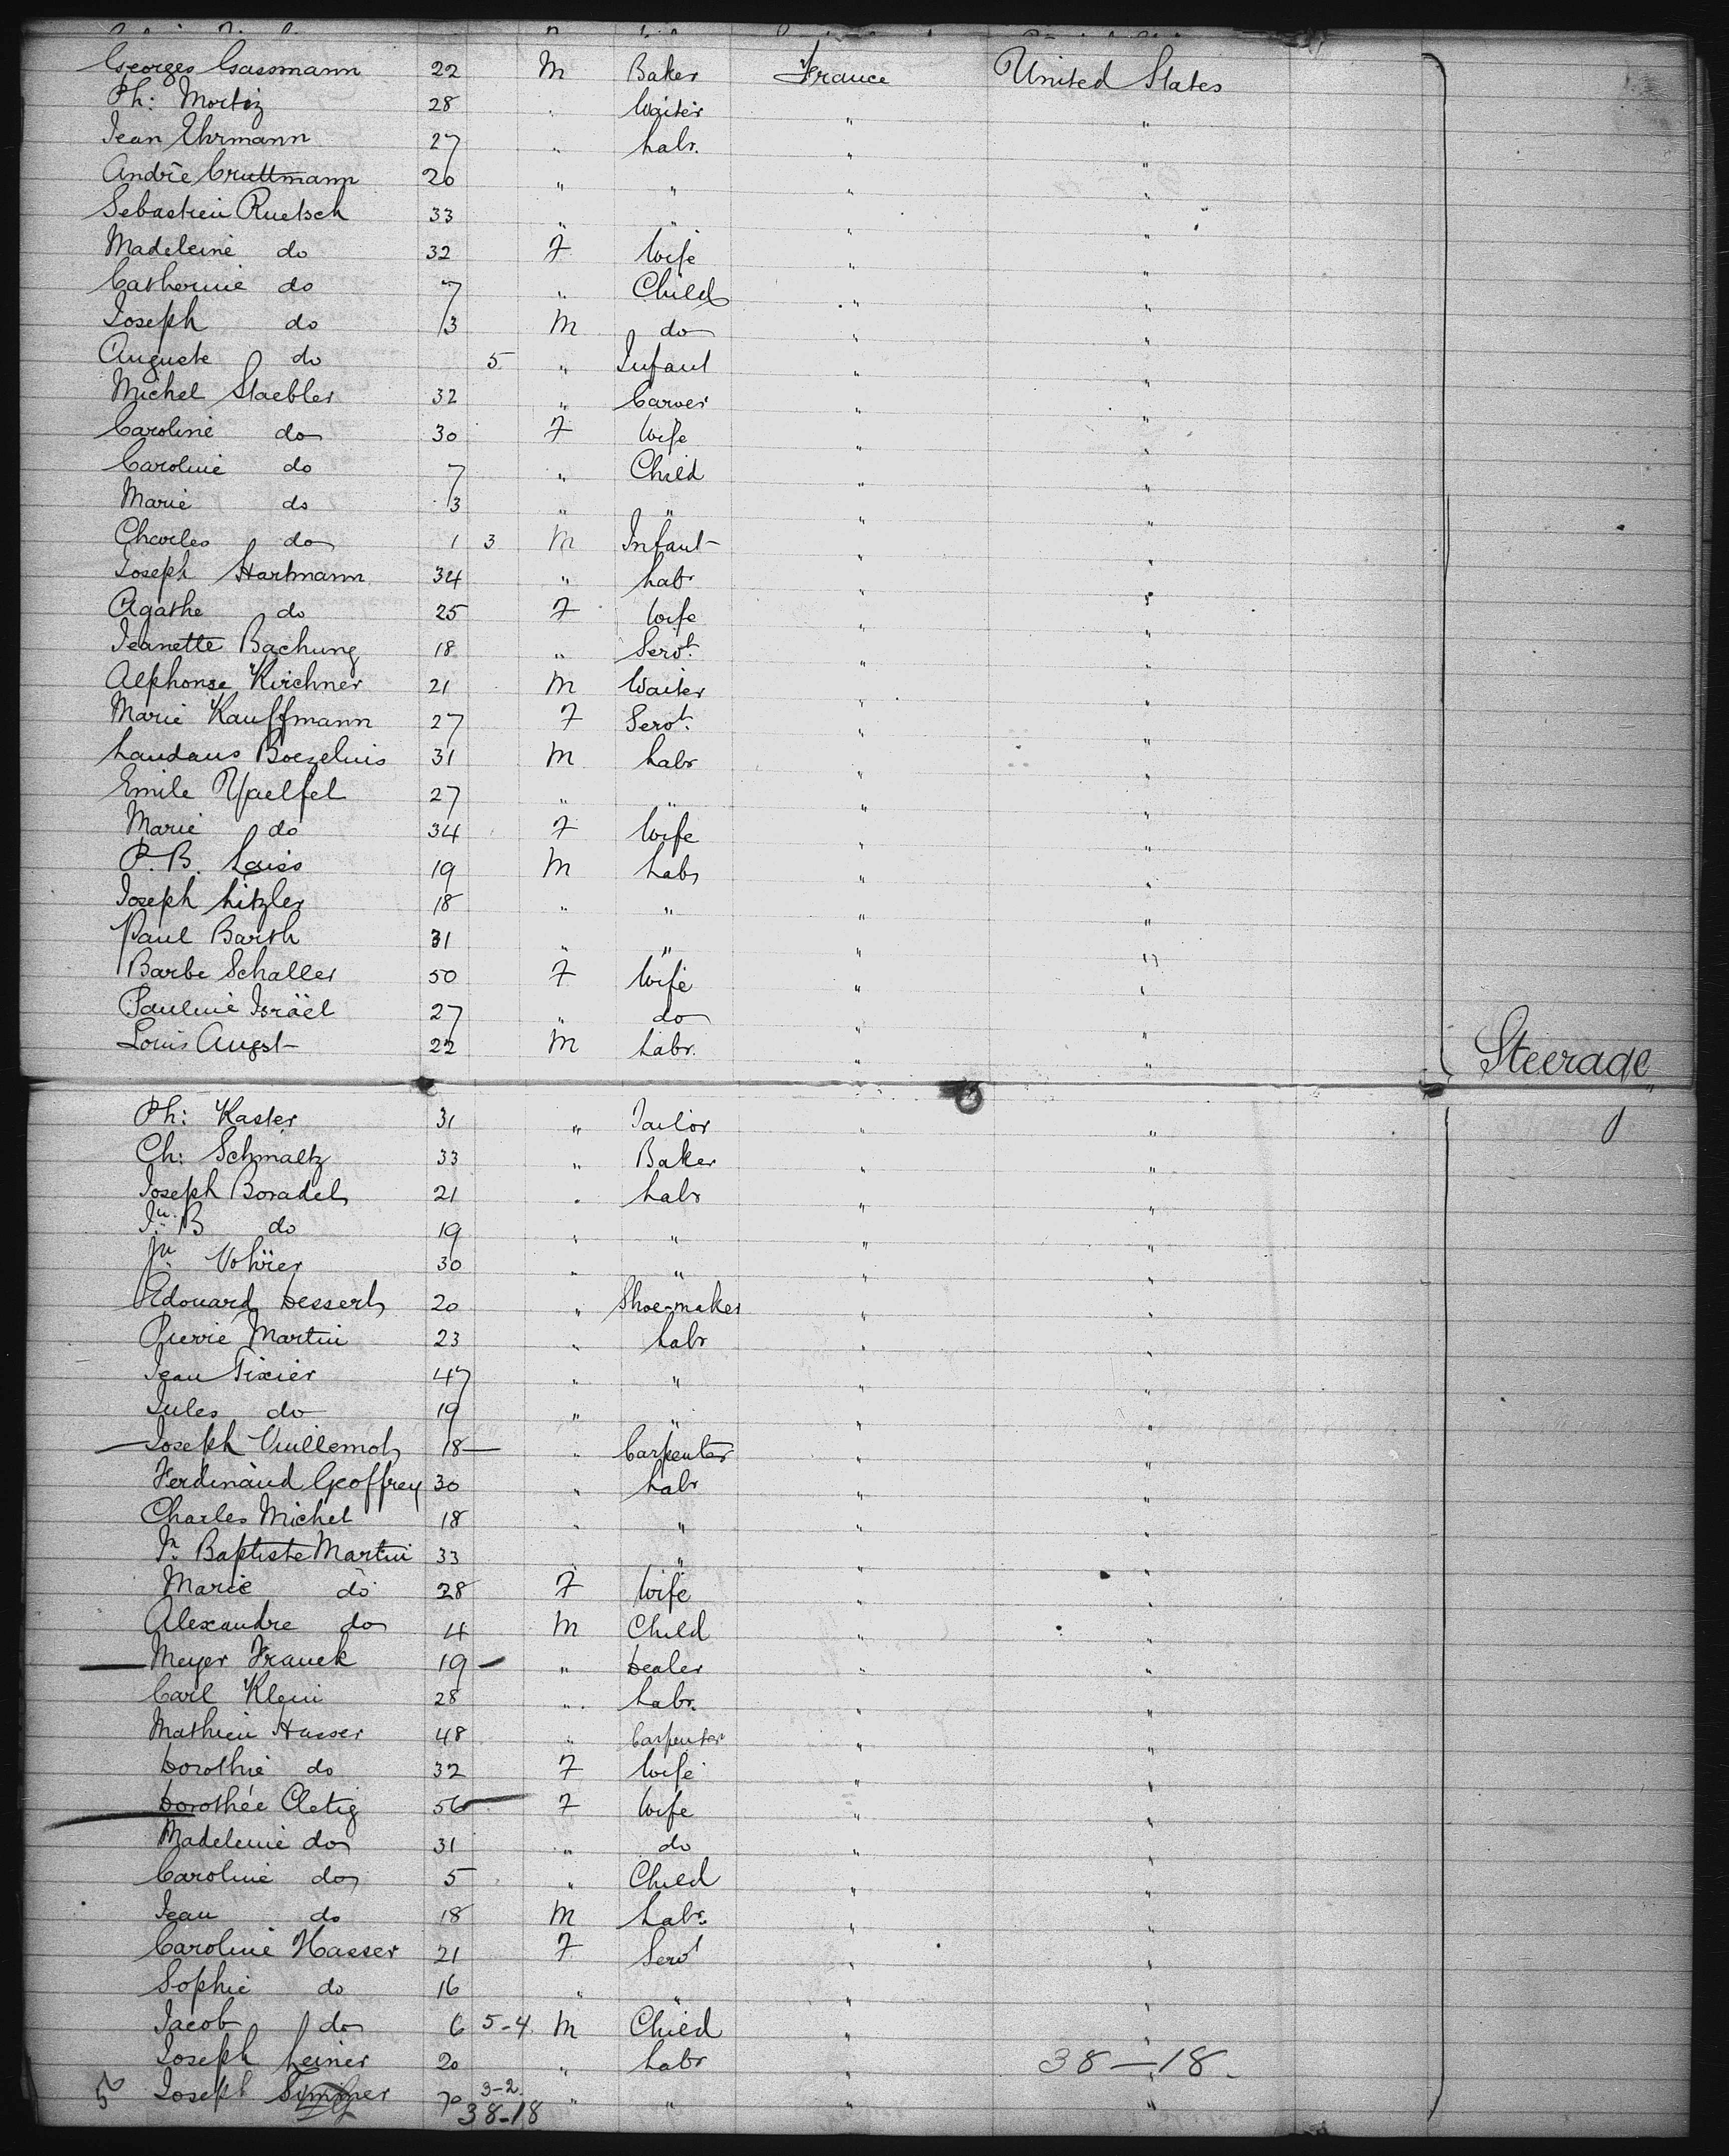 Georges Gassmann 22 M Baker France United States
Ph: Mortiz 28 " Waiter " "
Jean Ehrmann 27 " Labr. " "
André Cruttmann 20 " " " "
Sebastien Ruetsch 33 " " " "
Madeleine do 32 F Wife " "
Catherine do 7 " Child " "
Joseph do 3 M do " "
Auguste do 5 " Infant " "
Michel Staebler 32 " Carver " "
Caroline do 30 F Wife " "
Caroline do 7 " Child " "
Marie do 3 " " " "
Charles do 1 3 M Infant " "
Joseph Hartmann 34 " Labr " "
Agathe do 25 F Wife " "
Jeanette Bachung 18 " Servt. " "
Alphonse Kirchner 21 M Waiter " "
Marie Kauffmann 27 F Servt. " "
Landaus 31 M Labr " "
Emile 27 " " " "
Marie do 34 F Wife " "
P. B. Laiss 19 M Labr " "
Joseph Litzler 18 " " " "
Paul Barth 31 " " " "
Barbe Schaller 50 F Wife " "
Pauline Israël 27 " do " "
Louis Augst 22 M Labr. " "
Steerade
Ph: Kaster 31 " Tailor " "
Ch: Schmaltz 33 " Baker " "
Joseph Boradel 21 " Labr " "
Jn. B do 19 " " " "
Jn Vohrer 30 " " " "
Edouard Dessert 20 " Shoe-maker " "
Pierre Martin 23 " Labr " "
Jean Tixier 47 " " " "
Jules do 19 " " " "
Joseph Vuillemot 18 " Carpenter " "
Ferdinand Geoffrey 30 " Labr " "
Charles Michel 18 " " " "
Jn Baptiste Martin 33 " " " "
Marie do 28 F Wife " "
Alexandre do 4 M Child " "
Meyer Franck 19 " Dealer " "
Carl Klein 28 " Labr. " "
Mathieu Hasser 48 " Carpenter " "
Dorothie do 32 F Wife " "
Dorothée Cletig 56 F Wife " "
Madeleine do 31 " do " "
Caroline do 5 " Child " "
Jean do 18 M Labr. " "
Caroline Hasser 21 F Servt " "
Sophie do 16 " " " "
Jacob do 6 5-4 M Child " "
Joseph Leiner 20 " Labr " 38-18.
Joseph 3-2 " " " "
38-18